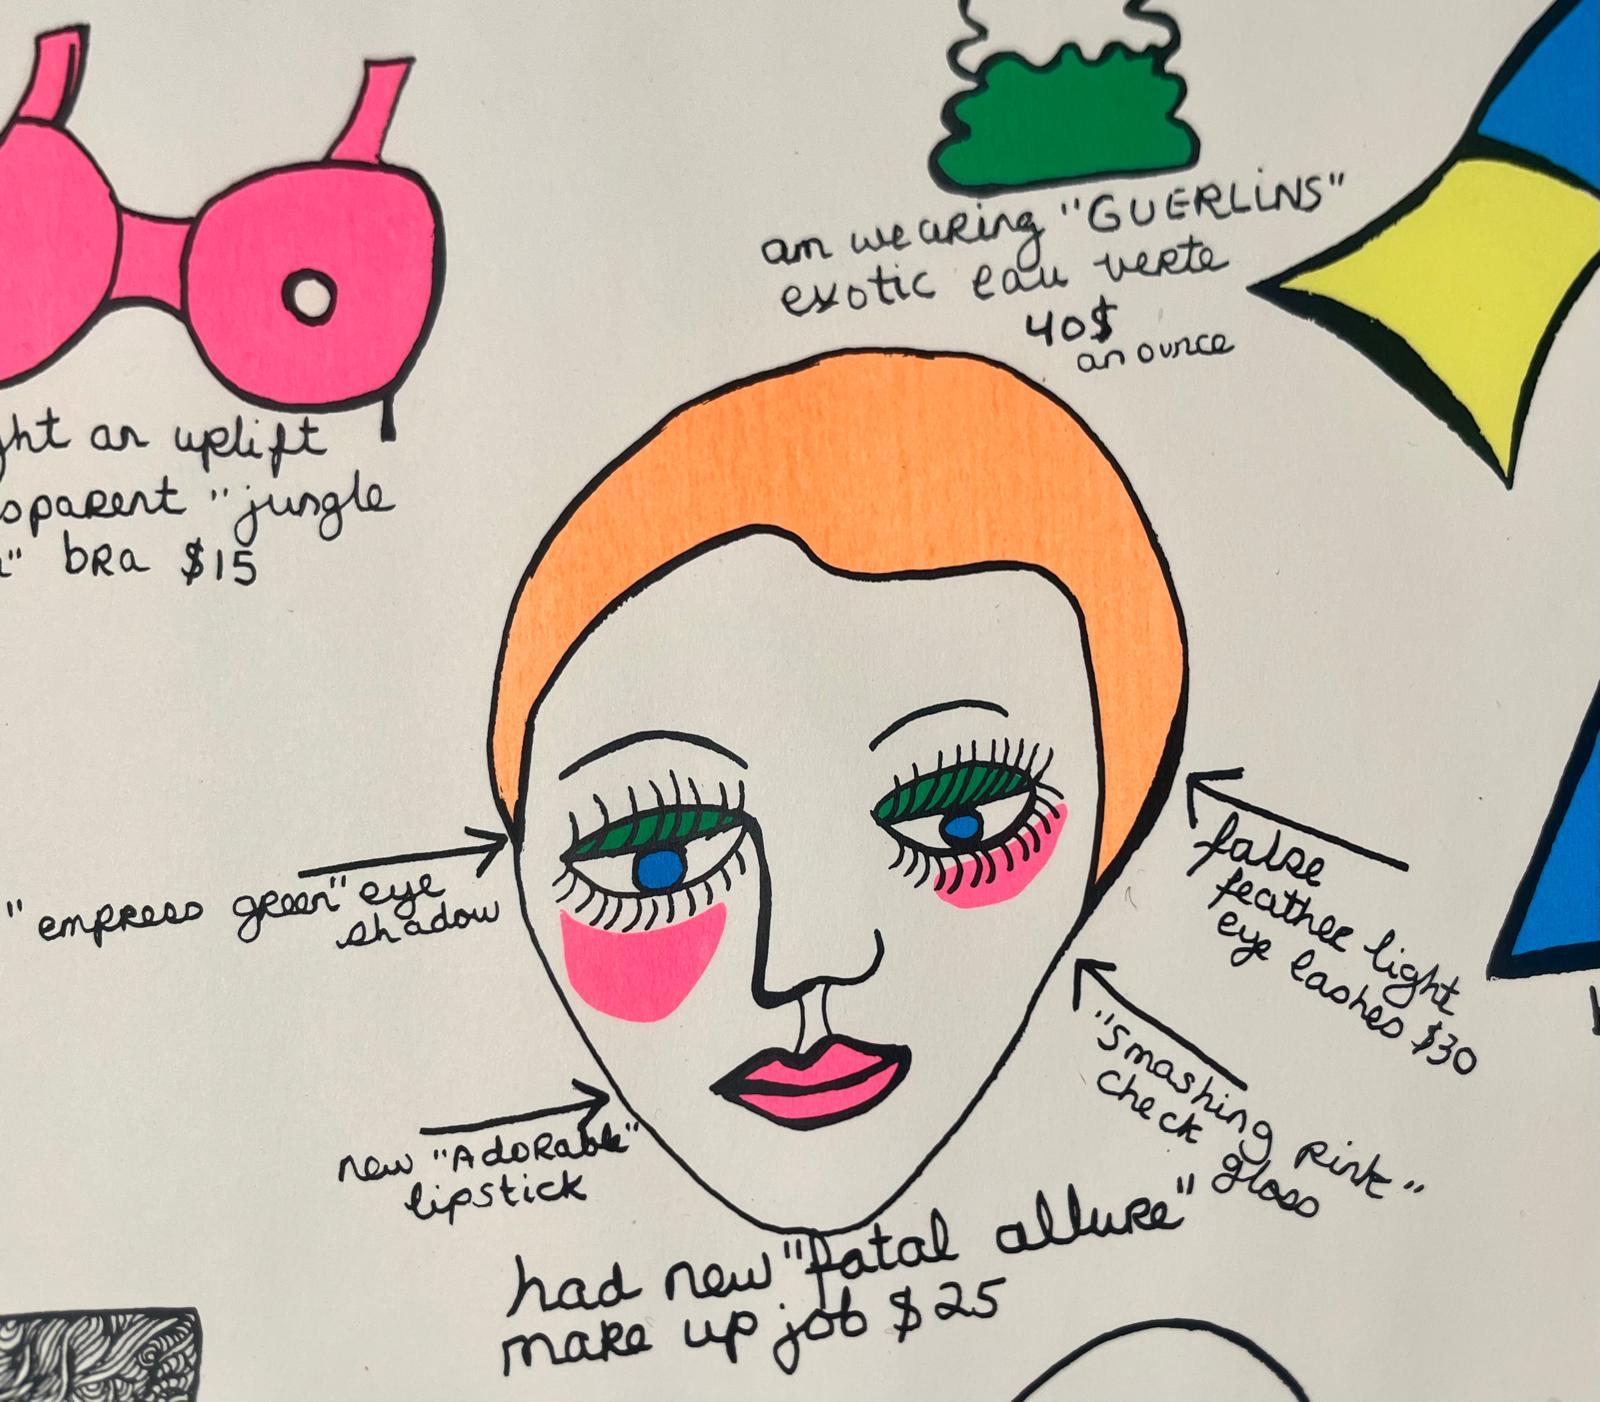 am wearing "GUERLiNS"
exotic eau verte
40$
an ounce
ght an uplift
sparent "jungle
" bra $15
"empress green" eye
shadow
false
feather light
eye lashes $30
"Smashing Pink"
check gloss
new "Adorable"
lipstick
had new "fatal allure"
make up job $25